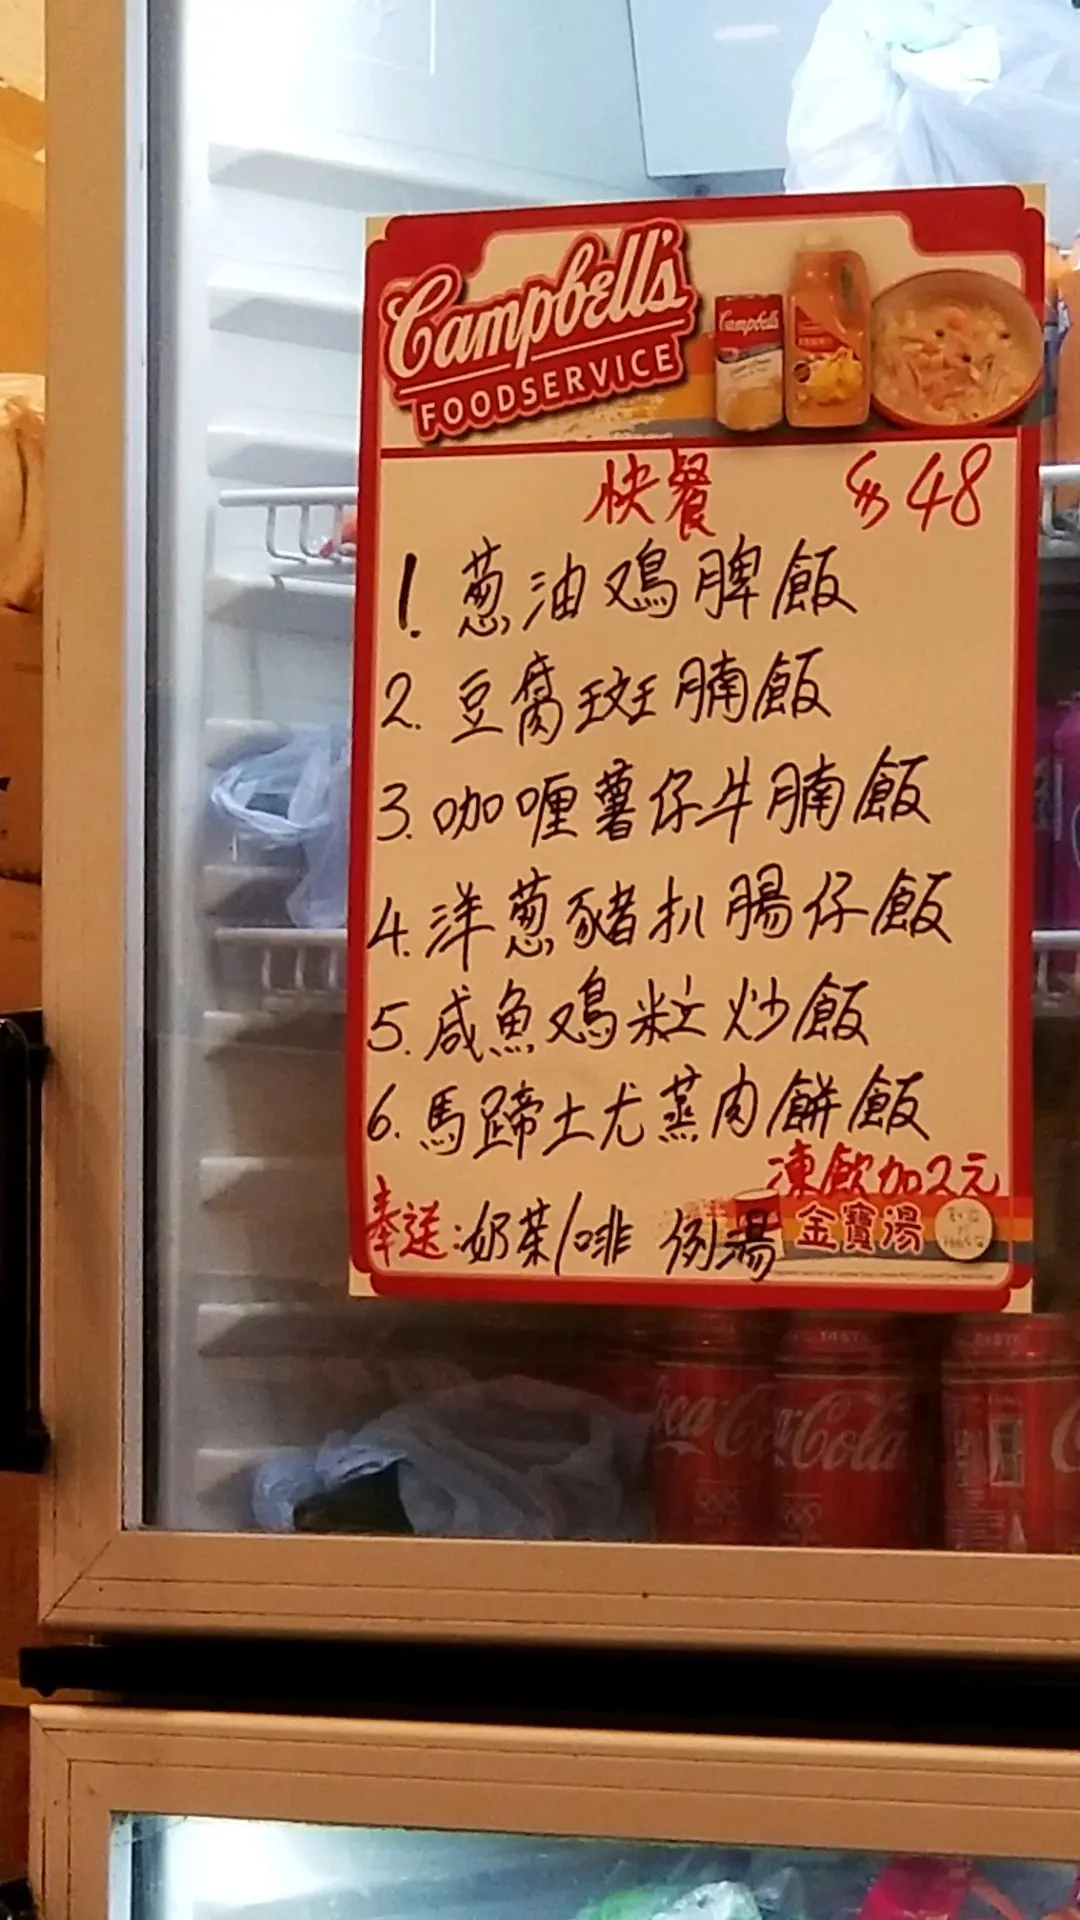 Campbell's
FOODSERVICE
Campbell's
快餐 $48
1. 葱油鸡脾飯
2. 豆腐斑腩飯
3. 咖喱薯仔牛腩飯
4. 洋葱豬扒腸仔飯
5. 咸魚鸡粒炒飯
6. 馬蹄土尤蒸肉餅飯
凍飲加2元
奉送:奶茶/啡 例湯
金寶湯
Coca-Cola
Coca-Cola